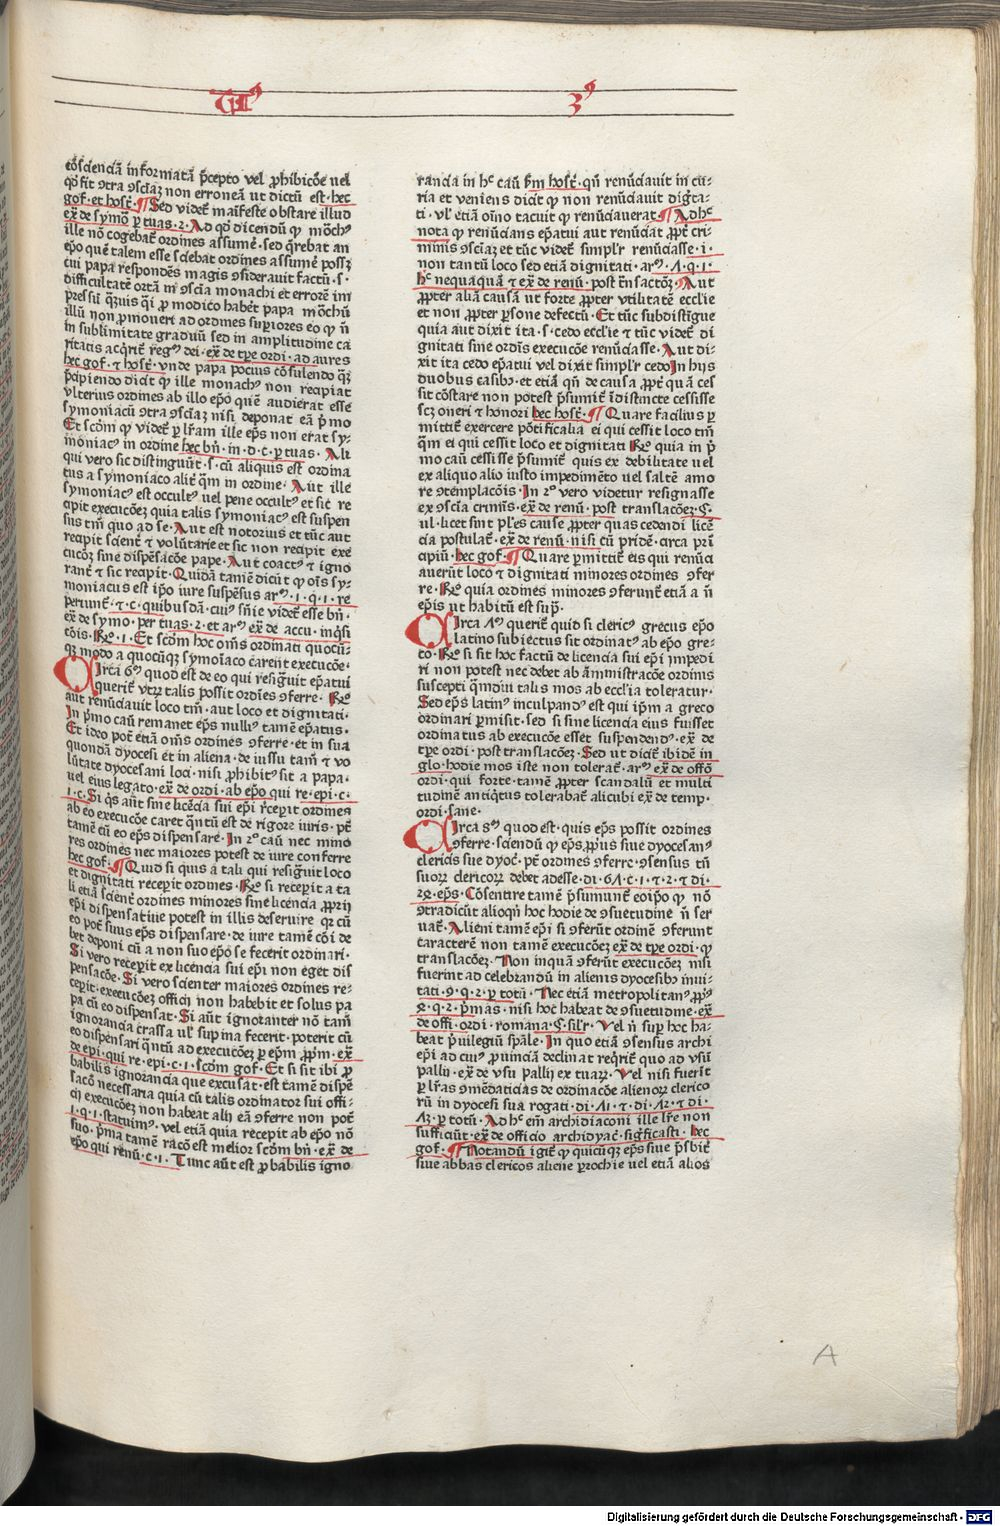 Tit⁹ 3⁹
cōscienciā informatā p̄cepto vel ꝓhibicōe uel
qd̓ fit ꝯtra ꝯsciaꝫ non erroneā ut dictū est · hec
gof · et host̓ · ¶ Sed videt̓ maīfeste obstare illud
ex̓ de symo̅ ꝑ tuas · 2 · Ad qd̓ dicendū ꝙ mōch⁹
ille nō cogebat̓ ordines assumē · sed q̄rebat an
ep̄o quē talem esse sciebat ordines assumē possꝫ
cui papa respondēs magis ꝯsideravit factū · s ·
difficultatē ortā in ꝯscia monachi et errorē im
pressū q̄ꝫuis q̄i ꝓ modico habēt papa mōchū
illū non ꝓmoueri ad ordines suꝑiores eo ꝙ n̄
in sublimitate graduū sed in amplitudine ca
ritatis acq̄rit̓ regnū dei · ex̓ de tꝑe ordi · ad aures
hec gof · ⁊ host̓ · vnde papa pocius cōsulendo q̄ꝫ
p̄cipiendo dicit ꝙ ille monach⁹ non recipiat
vlterius ordines ab illo ep̄o quē audierat esse
symoniacū ꝯtra ꝯsciaꝫ nisi deponat eā p̄mo
Et scd̓m ꝙ videt̓ ꝑ lr̄am ille ep̄s non erat sy-
moniac⁹ in ordine hec bn̄ · in · d · c · ꝑ tuas · Ali
qui vero sic distinguūt · s · cū aliquis est ordina
tus a symoniaco aliēt q̄m in ordine · Aut ille
symoniac⁹ est occult⁹ uel pene occult⁹ et sic re
cipit execucōeꝫ quia talis symoniac⁹ est suspen
sus tm̄ quo ad se · Aut est notorius et tūc aut
recipit scient̓ ⁊ volūtarie et sic non recipit exe
cucōꝫ sine dispēsacōe pape · Aut coact⁹ ⁊ igno
rant̓ ⁊ sic recipit · Quidā tamē dicūt ꝙ oīs sy-
moniacus est ip̄o iure suspēsus ar⁹ · 1 · q · 1 · re
perunt̓ · ⁊ · c · quibusdā · cui⁹ sn̄ie videt̓ esse bn̄ ·
ex̓ de symo · per tuas · 2 · et ar⁹ ex̓ de accu · inq̄si
tōis · R̄o · 1 · Et scd̓m hoc om̄s ordinati quocū-
qꝫ modo a quocūqꝫ symoīaco carent execucōe ·
CIrca 6⁹ quod est de eo qui resiguit ep̄atui
querit̓ vtꝝ talis possit ordīes ꝯferre · R̄o
aut renūciauit loco tm̄ · aut loco et dignitati ·
In p̄mo caū remanet ep̄s null⁹ tamē ep̄atus ·
Et ideo pot̓ etiā om̄s ordines ꝯferre · et in sua
quondā dyocesi et in aliena · de iussu tam̄ ⁊ vo
lūtate dyocesani loci · nisi ꝓhibit⁹ sit a papa ·
uel eius legato · ex̓ de ordi · ab ep̄o qui re · epi · c ·
1 · c · Si q̄s aut̄ sine licēcia sui ep̄i r̄ceꝑit ordines
ab eo execucōe caret qn̄tū est de rigore iuris · pt̓
tamē cū eo ep̄s dispensare · In 2⁰ caū nec mino
res ordines nec maiores potest de iure conferre
hec gof · ¶ Quid si quis a tali qui resiguit loco
et dignitati recepit ordines · R̄o si recepit a ta
li etiā scient̓ ordines minores sine licencia ꝓprij
ep̄i dispensatiue potest in illis deseruire qꝛ cū
eo pot̓ suus ep̄s dispensare · de iure tamē cōi de
bet deponi cū a non suo ep̄o se fecerit ordinari ·
Si vero receperit ex licencia sui ep̄i non eget dis
pensacōe · Si vero scienter maiores ordines re-
ceꝑit · execucōeꝫ officij non habebit et solus pa
pa cū eo dispensat · Si aūt ignoranter nō tam̄
ignorancia crassa ul̓ supina fecerit · poterit cū
eo dispensari qn̄tū ad execucōeꝫ ꝑ ep̄m ꝓp̄m · ex̓
de epi · qui re · epi · c · 1 · scd̓m gof · Et si sit ibi ꝓ
babilis ignorancia que excusat · est tamē dispē
sacō necessaria quia cū talis ordinator sui offi-
cij execucōeꝫ non habeat alij eā ꝯferre non pot̓
1 · q · 1 · statuim⁹ · vel etiā quia recepit ab ep̄o nō
suo · p̄ma tamē racō est melior scd̓m bn̄ · ex̓ de
ep̄o qui renū · c · 1 · Tunc aūt est ꝓbabilis igno
rancia in h̄c caū s̄m host̓ · qn̄ renūciauit in cu-
ria et veniens dicit ꝙ non renūciauit dig̅ta-
ti · vl̓ etiā oīno tacuit ꝙ renūciauerat ¶ Ad h̄c
nota ꝙ renūcians ep̄atui aut renūciat ꝓpt̓ cri-
minis ꝯsciaꝫ et tūc videt̓ simpl̓r renūciasse · i ·
non tantū loco sed etiā dignitati · ar⁹ · 1 · q · 1 ·
hc̄ nequaquā ⁊ ex̓ de renū · post tn̄sactōꝫ · Aut
ꝓpter aliā causā ut forte ꝓpter vtilitatē eccl̓ie
et non ꝓpter ꝑsone defectū · Et tūc subdistīgue
quia aut dixit ita · s · cedo eccl̓ie ⁊ tūc videt̓ di
gnitati sine ordīs execucōe renūciasse · Aut di-
xit ita cedo ep̄atui vel dixit simpl̓r cedo In hijs
duobus casib⁹ · et etiā qn̄ de causa ꝓpt̓ quā ces
sit cōstare non potest p̄sumit̓ īdistincte cessisse
scꝫ oneri ⁊ honori hec host̓ · ¶ Quare facilius ꝑ
mittit̓ exercere pōtificalia ei qui cessit loco tm̄
q̄m ei qui cessit loco et dignitati R̄o quia in p̄
mo caū cessisse p̄sumit̓ quis ex debilitate uel
ex aliquo alio iusto impedimēto uel saltē amo
re ꝯtemplacōis · In 2⁰ vero videtur resignasse
ex ꝯscia crimīs · ex̓ de renū · post translacōeꝫ · §.
ul · licet sint pl̓es cause ꝓpter quas cedendi licē
cia postulat̓ · ex̓ de renū · nisi cū pridē · circa pri
cipiū · hec gof · ¶ Quare ꝑmittit̓ eis qui renūci
auerūt loco ⁊ dignitati minores ordines ꝯfer
re · R̄o quia ordines minores ꝯferunt̓ etiā a n̄
ep̄is ut habitū est sup̄ ·
CIrca 7⁹ querit̓ quid si cleric⁹ grecus ep̄o
latino subiectus sit ordinat⁹ ab ep̄o gre-
co · R̄o si sit hoc factū de licencia sui ep̄i impedi
ri non potest nec debet ab am̄inistracōe ordinis
suscepti q̄mdiu talis mos ab eccl̓ia toleratur ·
Sed ep̄s latin⁹ inculpand⁹ est qui ip̄m a greco
ordinari ꝑmisit · sed si sine licencia eius fuisset
ordinatus ab execucōe esset suspendend⁹ · ex̓ de
tꝑe ordi · post translacōeꝫ · Sed ut dicit̓ ibidē in
glo · hodie mos iste non tolerat̓ · ar⁹ ex̓ de offō
ordi · qui forte · tamē ꝓpter scandalū et multi
tudinē antiq̄tus tolerabat̓ alicubi ex̓ de temp ·
ordi · sane ·
CIrca 8⁹ quod est · quis ep̄s possit ordines
ꝯferre · sciendū ꝙ ep̄s ꝓpius siue dyocesan⁹
clericis sue dyoc̓ · pt̓ ordines ꝯferre · ꝯsensus tn̄
suoꝝ clericoꝝ debet adesse · di · 67 · c · 1 · ⁊ · 2 · ⁊ di ·
24 · ep̄s · Cōsentire tamē p̄sumunt̓ eoip̄o ꝙ nō
ꝯtradicūt alioqn̄ hoc hodie de ꝯsuetudine n̄ ser
uat̓ · Alieni tamē ep̄i si ꝯferūt ordinē ꝯferunt
caracterē non tamē execucōeꝫ ex̓ de tꝑe ordi · ꝙ
translacōeꝫ · Non inquā ꝯferūt execucōeꝫ nisi
fuerint ad celebrandū in alienis dyocesib⁹ inui-
tati · 9 · q · 2 · ꝑ totū · Nec etiā metropolitan⁹ ꝓp⁹
9 · q · 2 · p̄mas · nisi hoc habeat de ꝯsuetudine · ex̓
de offi · ordi · romana · §. sil̓r · Vel n̄ suꝑ hoc ha-
beat p̄uilegiū sp̄ale · In quo etiā ꝯsensus archi
ep̄i ad cui⁹ ꝓuinciā declinat reqrit̓ quo ad vsū
pallij · ex̓ de vsu pallij ex tuaꝝ · Vel nisi fuerit
ꝑ lr̄as ꝯmēdaticias de ordinacōe alienoꝝ clerico
rū in dyocesi sua rogati · di · 71 · ⁊ · di · 72 · ⁊ · di ·
73 · ꝑ totū · Ad h̄c em̄ archidiaconi ille lr̄e non
sufficiūt · ex̓ de officio archidyac̓ · sig̅ficasti · hec
gof · ¶ Notandū igit̓ ꝙ quicūqꝫ ep̄s siue p̄sbit̓
siue abbas clericos aliene ꝑrochie uel etiā alios
A
Digitalisierung gefördert durch die Deutsche Forschungsgemeinschaft · DFG